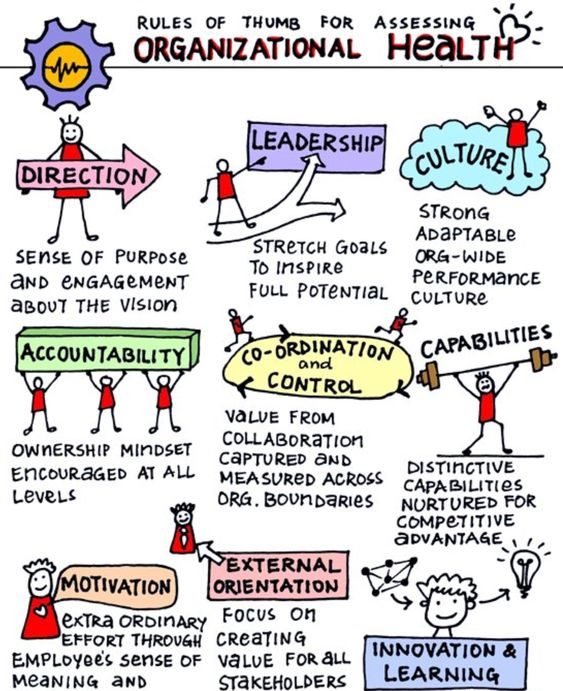 RULES OF THUMB FOR ASSESSING
ORGANIZATIONAL HEALTH
DIRECTION
SENSE OF PURPOSE
AND ENGAGEMENT
ABOUT THE VISION
LEADERSHIP
STRETCH GOALS
TO INSPIRE
FULL POTENTIAL
CULTURE
STRONG
ADAPTABLE
ORG-WIDE
PERFORMANCE
CULTURE
ACCOUNTABILITY
OWNERSHIP MINDSET
ENCOURAGED AT ALL
LEVELS
CO-ORDINATION
and
CONTROL
VALUE FROM
COLLABORATION
CAPTURED AND
MEASURED ACROSS
ORG. BOUNDARIES
CAPABILITIES
DISTINCTIVE
CAPABILITIES
NURTURED FOR
COMPETITIVE
ADVANTAGE
MOTIVATION
EXTRA ORDINARY
EFFORT THROUGH
EMPLOYEE'S SENSE OF
MEANING AND
EXTERNAL
ORIENTATION
FOCUS ON
CREATING
VALUE FOR ALL
STAKEHOLDERS
INNOVATION &
LEARNING